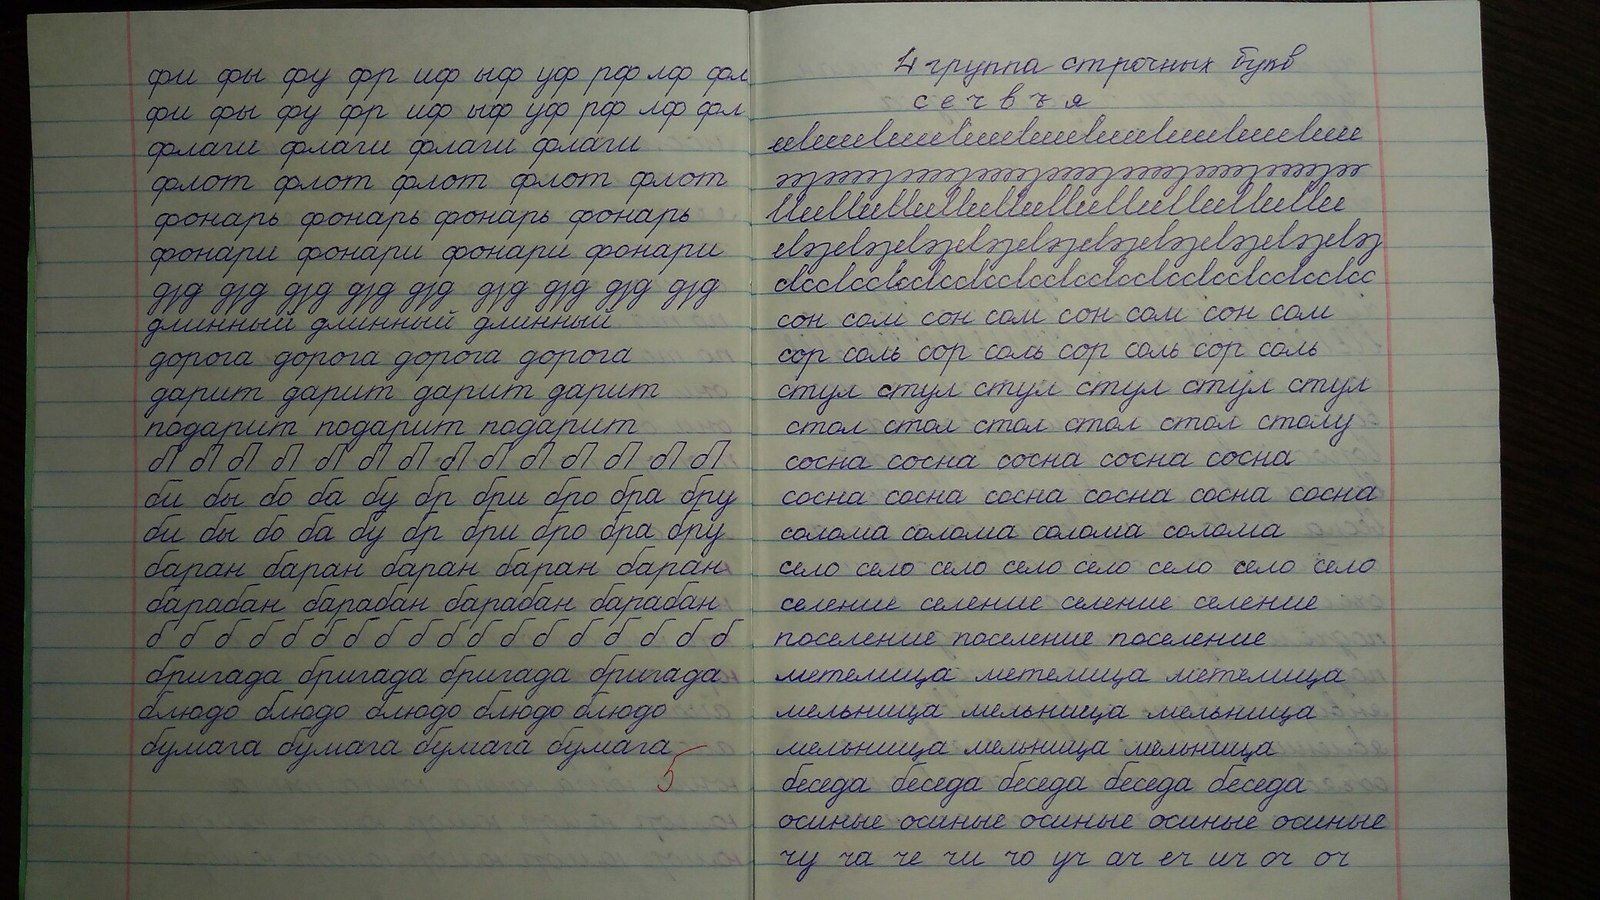 фи фы фу фр иф ыф уф рф лф фл
фи фы фу фр иф ыф уф рф лф фл
флаги флаги флаги флаги
флот флот флот флот флот
фонарь фонарь фонарь фонарь
фонари фонари фонари фонари
длинный длинный длинный
дорога дорога дорога дорога
дарит дарит дарит дарит
подарит подарит подарит
би бы бо ба бу бр бри бро бра бру
би бы бо ба бу бр бри бро бра бру
баран баран баран баран баран
барабан барабан барабан барабан
б б б б б б б б б б б б б б б б б б
бригада бригада бригада бригада
блюдо блюдо блюдо блюдо блюдо
бумага бумага бумага бумага
5
4 группа строчных букв
с е ч в ъ я
сон сом сон сом сон сом сон сом
сор соль сор соль сор соль сор соль
стул стул стул стул стул стул
стол стол стол стол стол столу
сосна сосна сосна сосна сосна
сосна сосна сосна сосна сосна сосна
солома солома солома солома
село село село село село село село село
селение селение селение селение
поселение поселение поселение
метелица метелица метелица
мельница мельница мельница
мельница мельница мельница
беседа беседа беседа беседа беседа
осиные осиные осиные осиные осиные
чу ча че чи чо уч ач еч ич оч оч